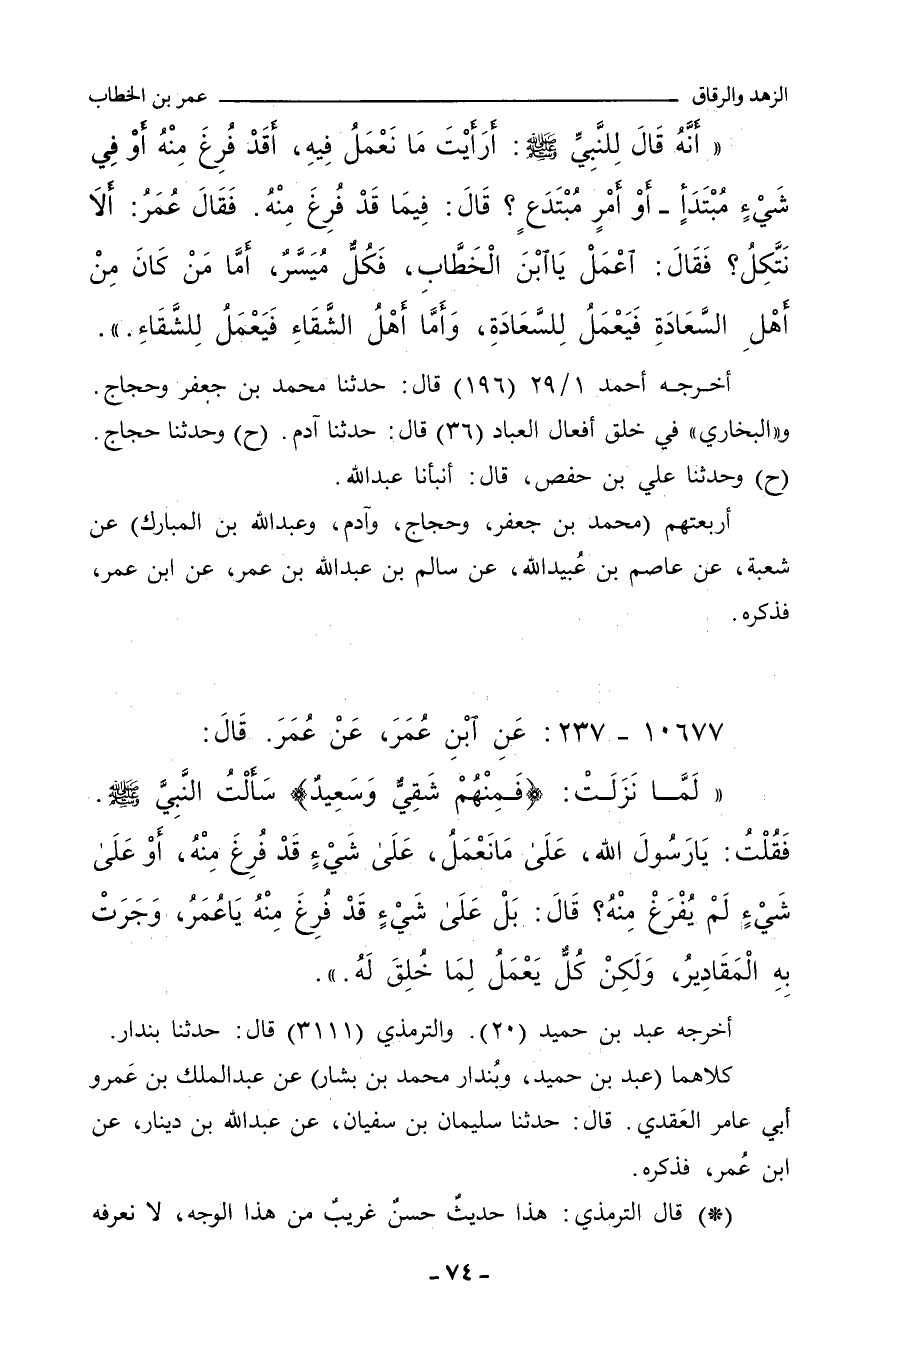 الزهد والرقاق ــــــــــــــــــــــــــــــــ عمر بن الخطاب
« أَنَّهُ قَالَ لِلنَّبِيِّ ﷺ : أَرَأَيْتَ مَا نَعْمَلُ فِيهِ، أَقَدْ فُرِغَ مِنْهُ أَوْ فِي
شَيْءٍ مُبْتَدَأٍ ـ أَوْ أَمْرٍ مُبْتَدَعٍ ؟ قَالَ : فِيمَا قَدْ فُرِغَ مِنْهُ. فَقَالَ عُمَرُ : أَلَا
نَتَّكِلُ؟ فَقَالَ : ٱعْمَلْ يَاٱبْنَ الْخَطَّابِ، فَكُلٌّ مُيَسَّرٌ، أَمَّا مَنْ كَانَ مِنْ
أَهْلِ السَّعَادَةِ فَيَعْمَلُ لِلسَّعَادَةِ، وَأَمَّا أَهْلُ الشَّقَاءِ فَيَعْمَلُ لِلشَّقَاءِ . ».
أخرجه أحمد ٢٩/١ (١٩٦) قال : حدثنا محمد بن جعفر وحجاج .
و«البخاري» في خلق أفعال العباد (٣٦) قال : حدثنا آدم . (ح) وحدثنا حجاج .
(ح) وحدثنا علي بن حفص، قال : أنبأنا عبدالله .
أربعتهم (محمد بن جعفر، وحجاج، وآدم، وعبدالله بن المبارك) عن
شعبة، عن عاصم بن عُبيدالله، عن سالم بن عبدالله بن عمر، عن ابن عمر،
فذكره .
١٠٦٧٧ ـ ٢٣٧ : عَنِ ٱبْنِ عُمَرَ، عَنْ عُمَرَ. قَالَ :
« لَمَّا نَزَلَتْ : ﴿فَمِنْهُمْ شَقِيٌّ وَسَعِيدٌ﴾ سَأَلْتُ النَّبِيَّ ﷺ .
فَقُلْتُ : يَارَسُولَ الله، عَلَىٰ مَانَعْمَلُ، عَلَىٰ شَيْءٍ قَدْ فُرِغَ مِنْهُ، أَوْ عَلَىٰ
شَيْءٍ لَمْ يُفْرَغْ مِنْهُ؟ قَالَ : بَلْ عَلَىٰ شَيْءٍ قَدْ فُرِغَ مِنْهُ يَاعُمَرُ، وَجَرَتْ
بِهِ الْمَقَادِيرُ، وَلَكِنْ كُلٌّ يَعْمَلُ لِمَا خُلِقَ لَهُ . ».
أخرجه عبد بن حميد (٢٠). والترمذي (٣١١١) قال : حدثنا بندار .
كلاهما (عبد بن حميد، وبُندار محمد بن بشار) عن عبدالملك بن عَمرو
أبي عامر العَقدي . قال : حدثنا سليمان بن سفيان، عن عبدالله بن دينار، عن
ابن عُمر، فذكره .
(*) قال الترمذي : هذا حديثٌ حسنٌ غريبٌ من هذا الوجه، لا نعرفه
ـ ٧٤ ـ